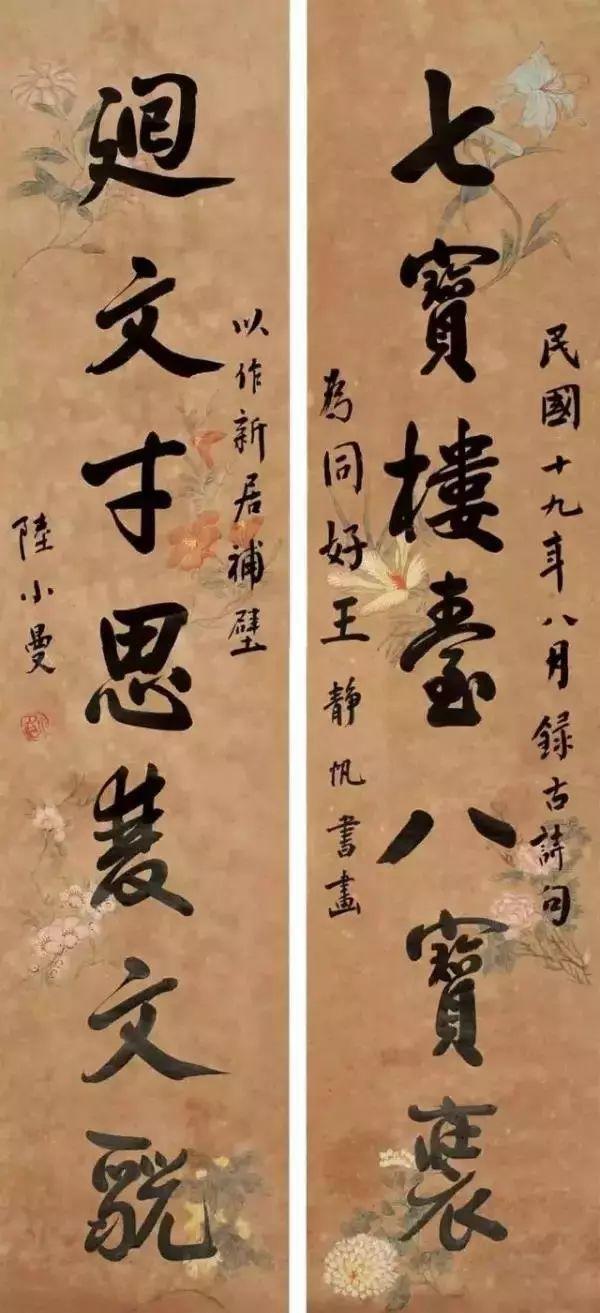 民國十九年八月錄古詩句
七寶樓臺八寶裝
為同好王靜帆書畫
以作新居補壁
廻文才思雙文貌
陸小曼